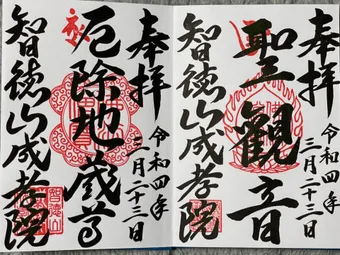 奉拝
聖観音
令和四年
三月二十三日
智徳山成孝院
奉拝
厄除地蔵尊
令和四年
三月二十三日
智徳山成孝院